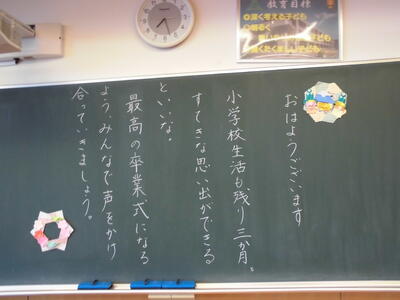 教育目標
深く考える子ども
おはようございます
小学校生活も残り三か月。
すてきな思い出ができる
といいな。
最高の卒業式になる
よう、みんなで声をかけ
合っていきましょう。